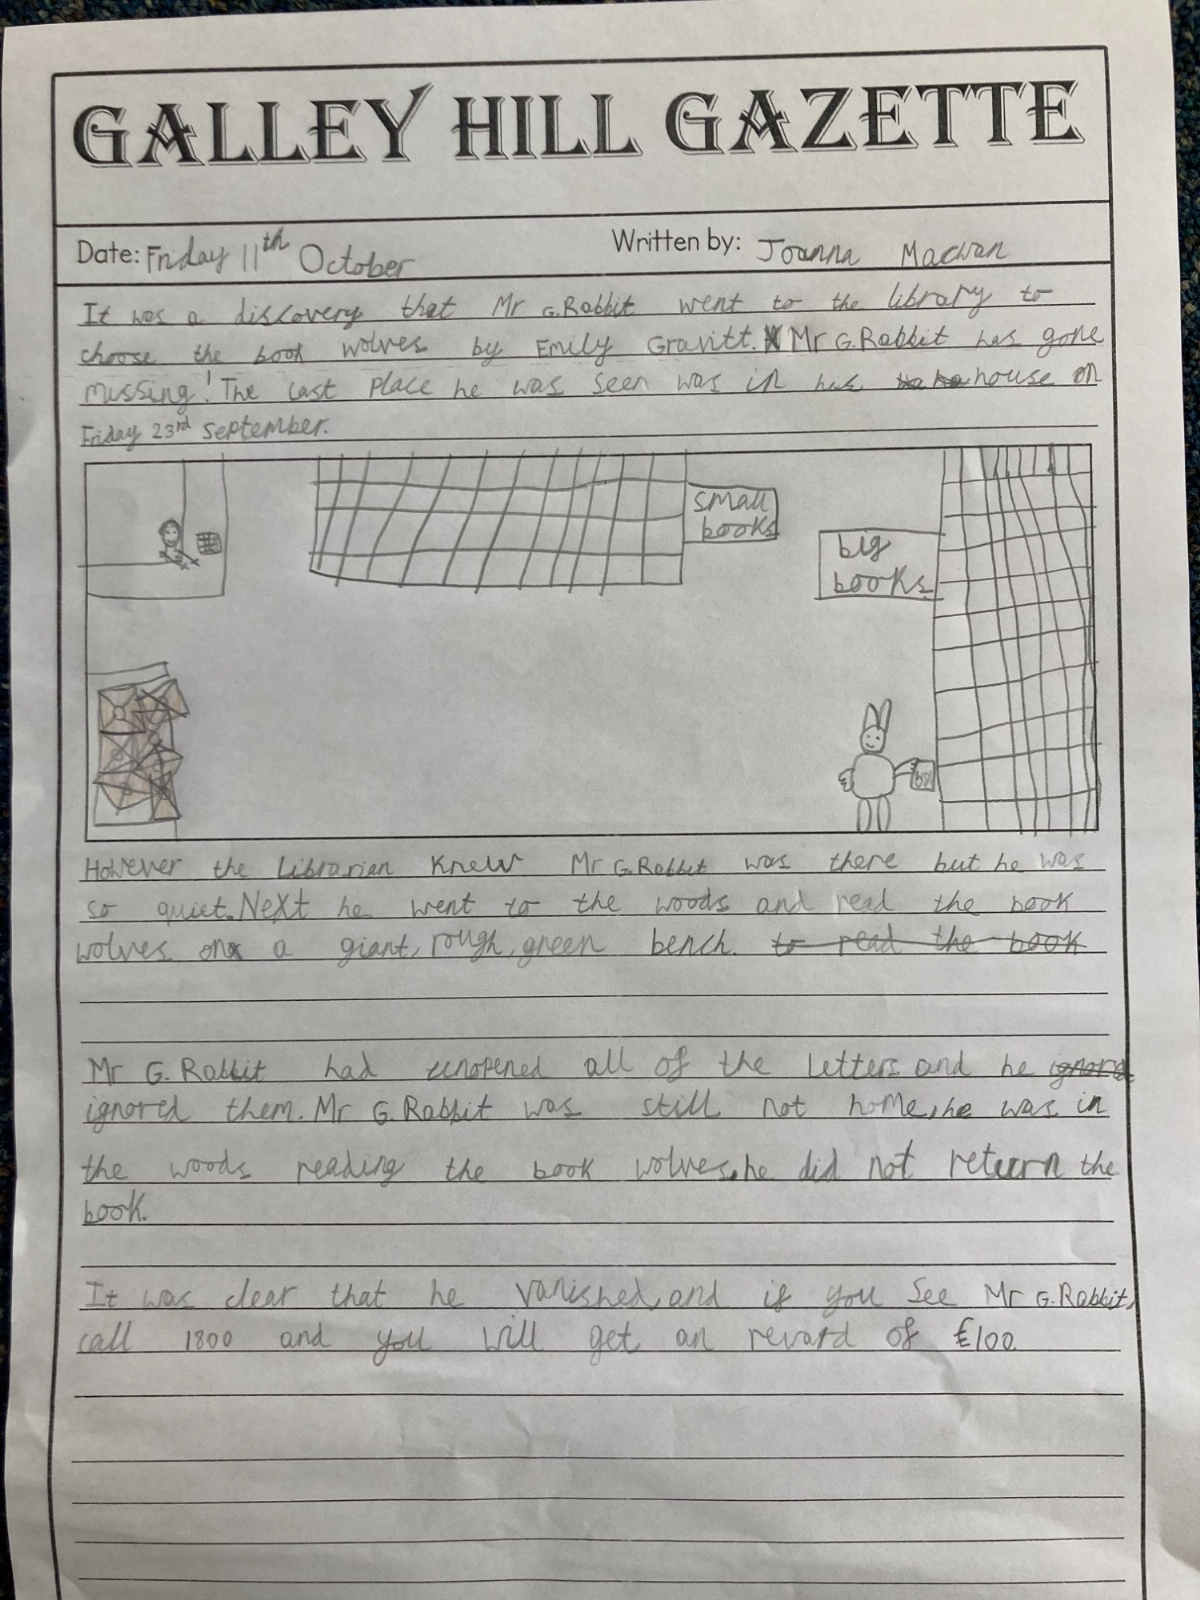 GALLEY HILL GAZETTE
Date: Friday 11th October Written by: Joanna Macwan
It was a discovery that Mr G.Rabbit went to the library to
choose the book wolves by Emily Gravitt. Mr G.Rabbit has gone
missing! The last place he was seen was in his house on
Friday 23rd September.
small
books
big
books
However the librarian knew Mr G.Rabbit was there but he was
so quiet. Next he went to the woods and read the book
wolves on a giant, rough, green bench. to read the book
Mr G. Rabbit had unopened all of the letters and he ignord
ignored them. Mr G. Rabbit was still not home, he was in
the woods reading the book wolves, he did not return the
book.
It was clear that he vanished, and if you see Mr G.Rabbit,
call 1800 and you will get an reward of £100.